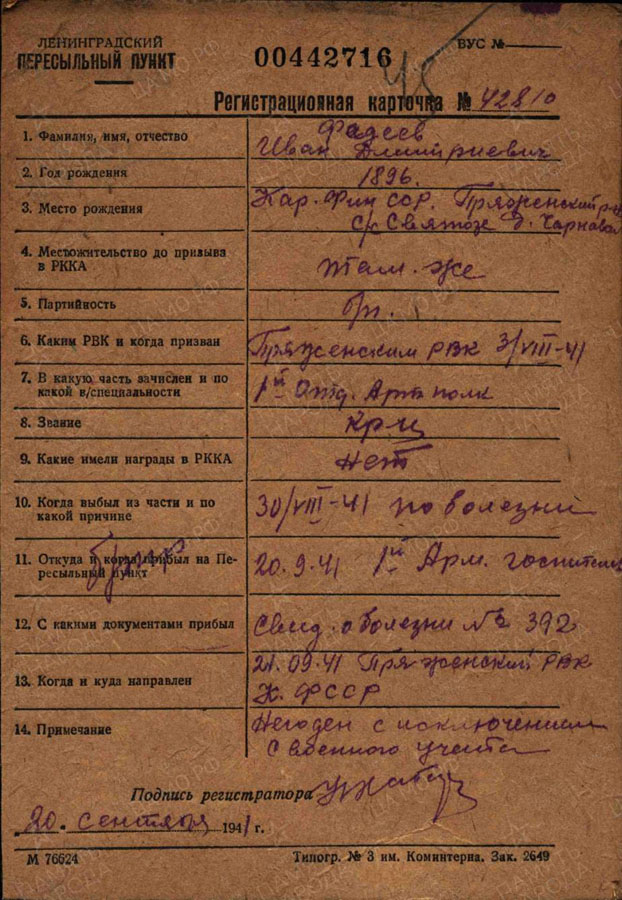 ЛЕНИНГРАДСКИЙ
ПЕРЕСЫЛЬНЫЙ ПУНКТ
00442716
ВУС №
48
Регистрационная карточка № 42810
1. Фамилия, имя, отчество
Фадеев
Иван Дмитриевич
2. Год рождения
1896.
3. Место рождения
Кар. Фин ССР. Пряженский р-н
с/с Святозе д. Чарнава
4. Местожительство до призыва
в РККА
там. же
5. Партийность
бп.
6. Каким РВК и когда призван
Пряженским РВК 3/VIII-41
7. В какую часть зачислен и по
какой в/специальности
1й Отд. Арт полк
8. Звание
кр-ц
9. Какие имели награды в РККА
нет
10. Когда выбыл из части и по
какой причине
30/VIII-41 по болезни
11. Откуда и когда прибыл на Пе-
ресыльный пункт
20.9.41 1й Арм. госпиталь
12. С какими документами прибыл
Свид. о болезни № 392
13. Когда и куда направлен
21.09.41 Пряженский РВК
К. ФССР
14. Примечание
Негоден с исключением
с военного учета
Подпись регистратора
20. сентября 1941 г.
М 76624
Типогр. № 3 им. Коминтерна. Зак. 2649